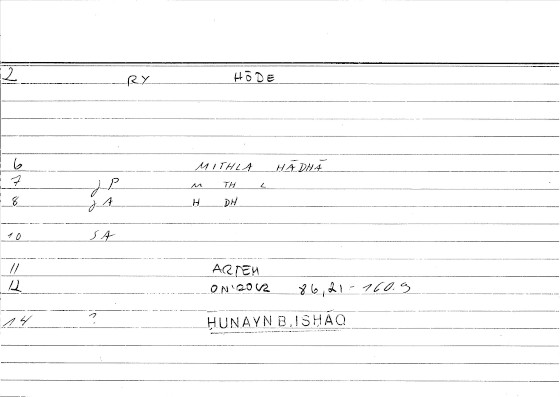 2 RY HŌDE
6 MITHLA HĀDHĀ
7 jP M TH L
8 jA H DH
10 SA
11 ARTEM
12 86,21-160.9
14 ? ḤUNAYN B. ISḤĀQ